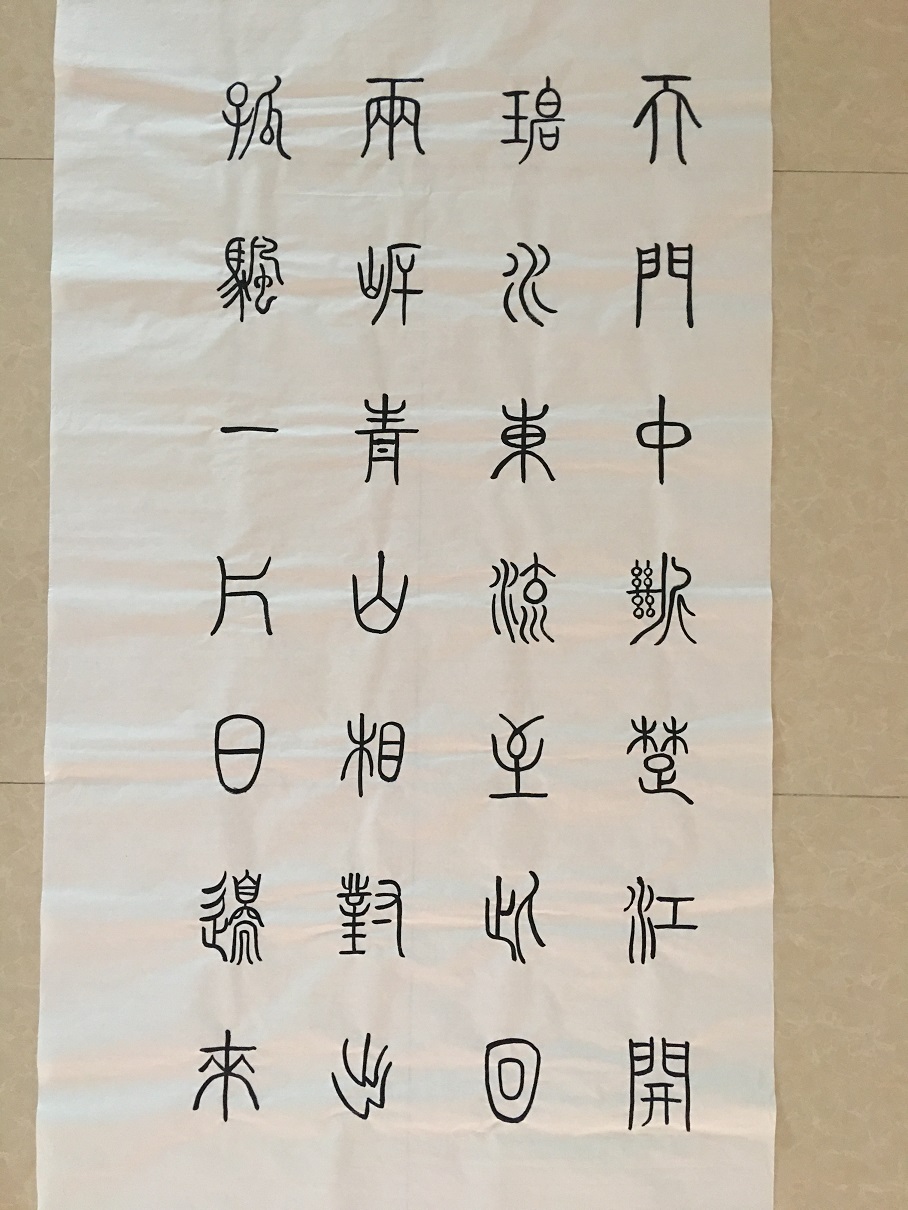 天門中斷楚江開
碧水東流至此回
兩岸青山相對出
孤帆一片日邊來